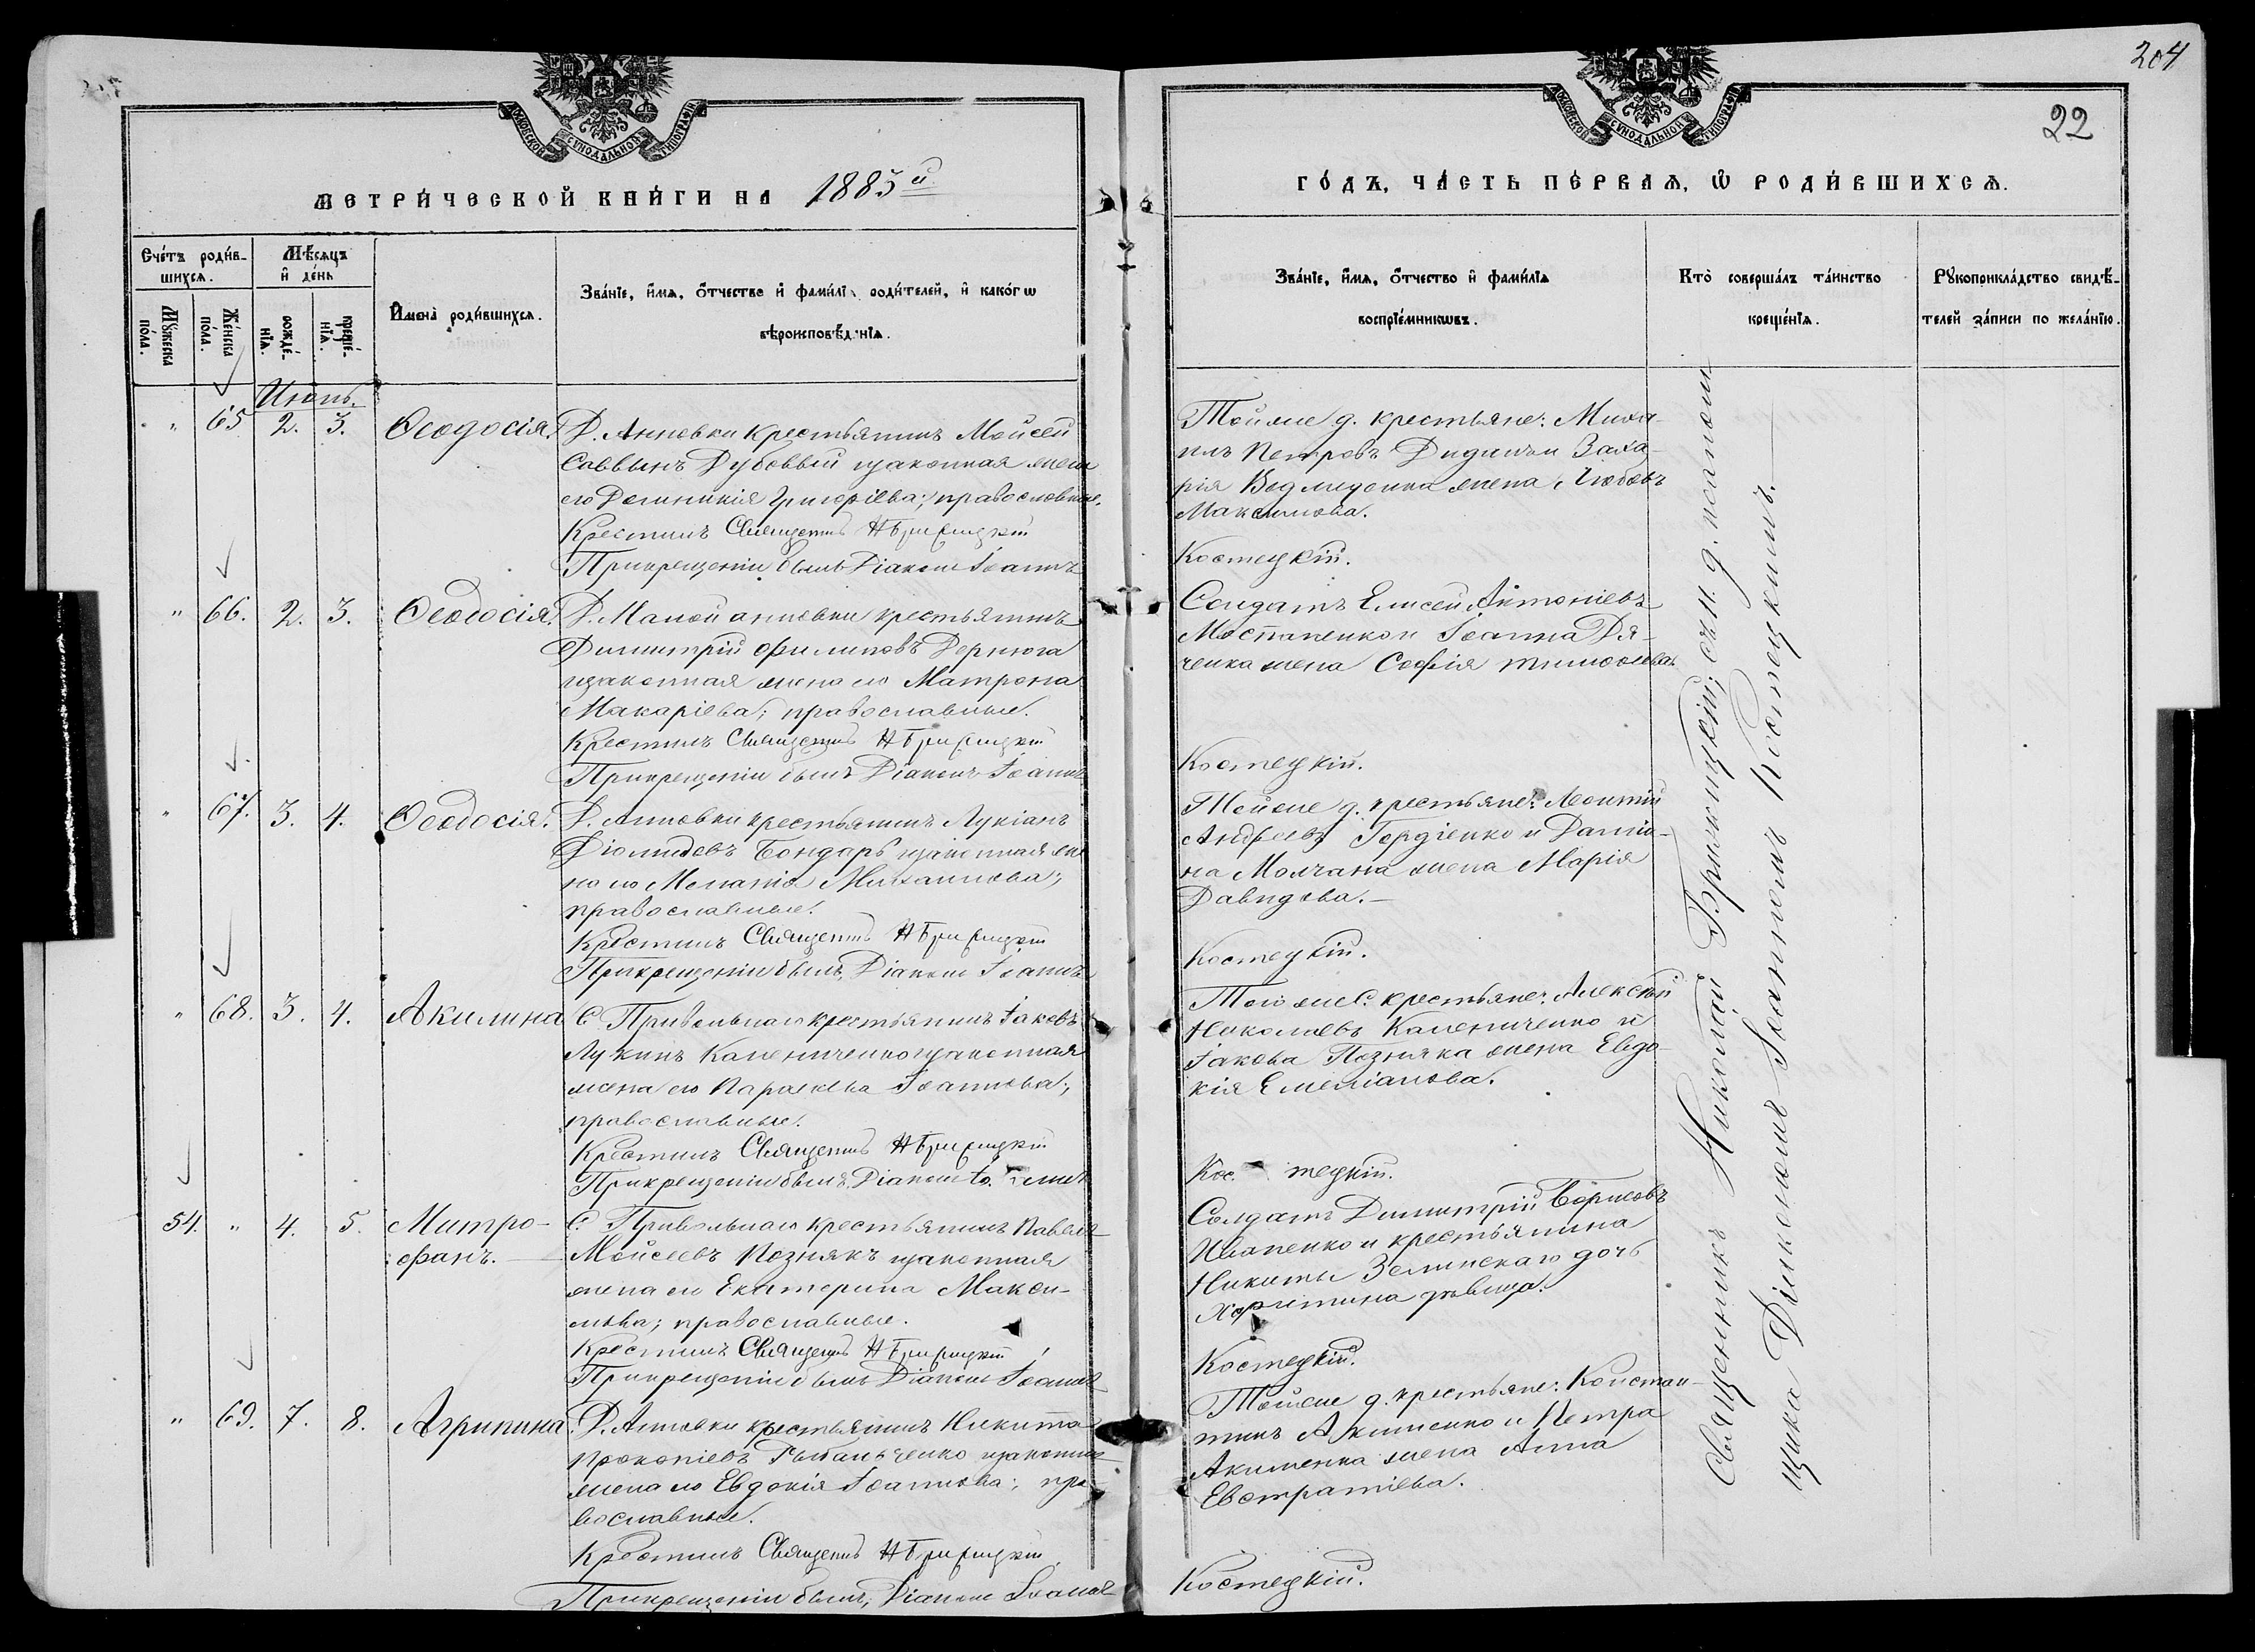 204
22
МОСКОВСКОЙ СѴНОДАЛЬНОЙ ТИПОГРАФІИ
МОСКОВСКОЙ СѴНОДАЛЬНОЙ ТИПОГРАФІИ
МЕТРИ́ЧЕСКОЙ КНИ́ГИ НА 1885й
ГО́ДЪ, ЧА́СТЬ ПЕ́РВАЯ, Ѡ РОДИ́ВШИХСЯ.
Сче́тъ роди́в-
шихся.
Мѣ́сяцъ
и де́нь
Мꙋ́жеска
по́ла.
Же́нска
по́ла.
рожде́-
нїя.
креще́-
нїя.
Имена̀ роди́вшихся.
Зва́нїе, и́мя, о́тчество и фами́лї роди́телей, и како́гѡ
вѣроисповѣ́д нїя.
Зва́нїе, и́мя, о́тчество и фами́лїя
воспрїе́мникѡвъ.
Кто̀ соверша́лъ та́инство
креще́нїя.
Рꙋкоприкла́дство свидѣ́-
телей за́писи по жела́нїю.
Июнь.
" 65 2. 3. Ѳеодосія. Д. Анновки крестьянинъ Мойсей
Саввинъ Дубовый изаконная жена
его Домникія Григоріева; православные.
Крестилъ Священникъ Н Бришицкій
При крещеніи былъ Діаконъ Іоаннъ
Той же д. крестьяне: Миха-
илъ Петровъ Дидичъ и Заха-
рія Ведмиденка жена Любовь
Максимова.
Костецкій.
" 66. 2. 3. Ѳеодосія. Д. Малой анновки крестьянинъ
Димитрій Филиповъ Дернюга
изаконная жена его Матрона
Макаріева; православные.
Крестилъ Священникъ Н Бришицкій
При крещеніи былъ Діаконъ Іоаннъ
Солдатъ Елисей Антоніевъ
Мостипенко и Іоанна Дя-
ченка жена Софія Тимоѳеева
Костецкій.
" 67. 3. 4. Ѳеодосія. Д. Анновки крестьянинъ Лукіанъ
Діомидовъ Бондарь изаконная же
на его Меланія Михаилова;
православные.
Крестилъ Священникъ Н Бришицкій
При крещеніи былъ Діаконъ Іоаннъ
Той же д. крестьяне: Леонтій
Андреевъ Гордіенко и Даніи-
ла Молчана жена Марія
Давидова.—
Костецкій.
" 68. 3. 4. Акилина С. Привольнаго крестьянинъ Іаковъ
Лукинъ Калениченко изаконная
жена его Параскева Іоаннова;
православные.
Крестилъ Священникъ Н Бришицкій
При крещеніи былъ Діаконъ
Того же С. крестьяне: Алексѣй
Николаевъ Калениченко и
Іакова Позняка жена Евдо-
кія Емеліанова.
Кос тецкій.
54. " 4. 5. Митро- С. Привольнаго крестьянинъ Павелъ
фанъ.— Мойсеевъ Познякъ изаконная
жена его Екатерина Макси-
мова; православные.
Крестилъ Священникъ Н Бришицкій
При крещеніи былъ Діаконъ Іоаннъ
Солдатъ Димитрій Борисовъ
Иваненко и крестьянина
Никиты Зелинскаго дочь
Харитина дѣвица.
Костецкій.
" 69. 7. 8. Агрипина. Д. Анновки крестьянинъ Никита
Прокопіевъ Рыбальченко изаконная
жена его Евдокія Іоаннова; пра-
вославные.
Крестилъ Священникъ Н Бришицкій
При крещеніи былъ, Діаконъ Іоаннъ
Той же д. крестьяне: Констан-
тинъ Акименко и Петра
Акименка жена Анна
Евстратіева.
Костецкій.
Священникъ Николай Бришицкій; съ и. д. псалом-
щика Діакономъ Іоанномъ Костецкимъ.